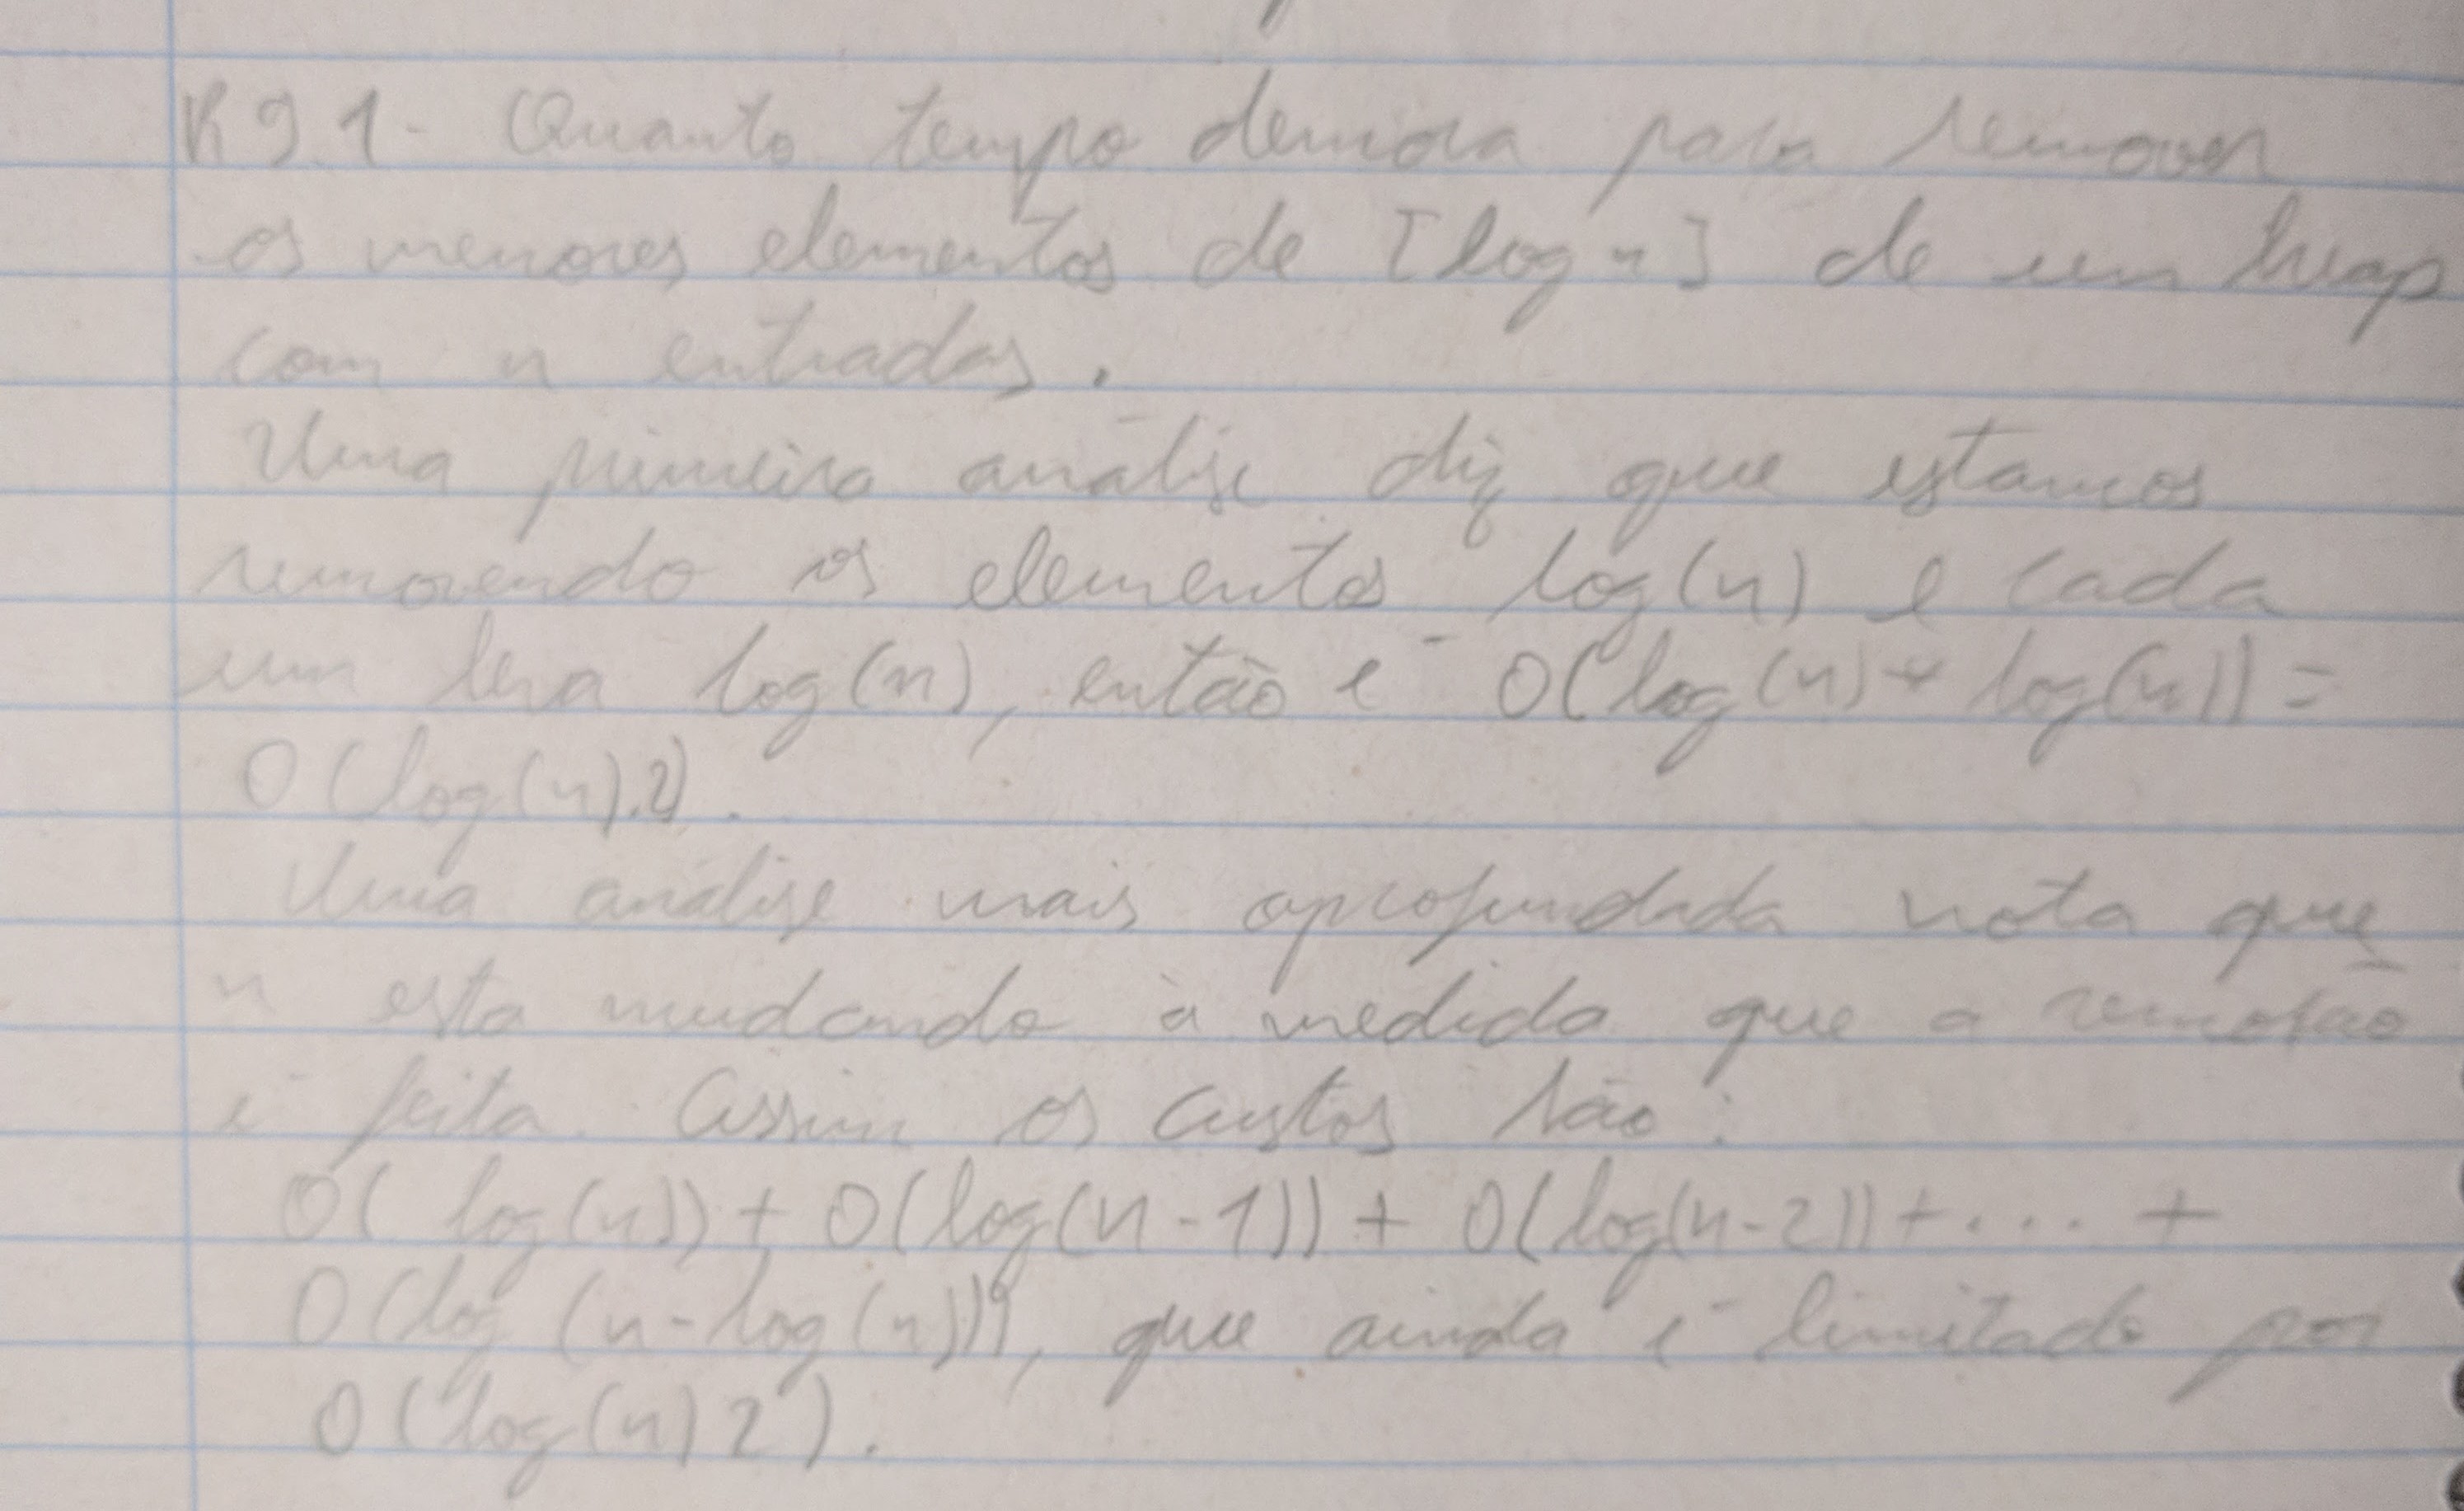 R 9.1 - Quanto tempo demora para remover
os menores elementos de ⌈log n⌉ de um heap
com n entradas.
Uma primeira análise diz que estamos
removendo os elementos log(n) e cada
um leva log(n), então é O(log(n) * log(n)) =
O(log(n).2).
Uma análise mais aprofundada nota que
n esta mudando à medida que a remoção
é feita. Assim os custos são:
O(log(n)) + O(log(n-1)) + O(log(n-2)) + ... +
O(log(n-log(n))), que ainda é limitado por
O(log(n)2).